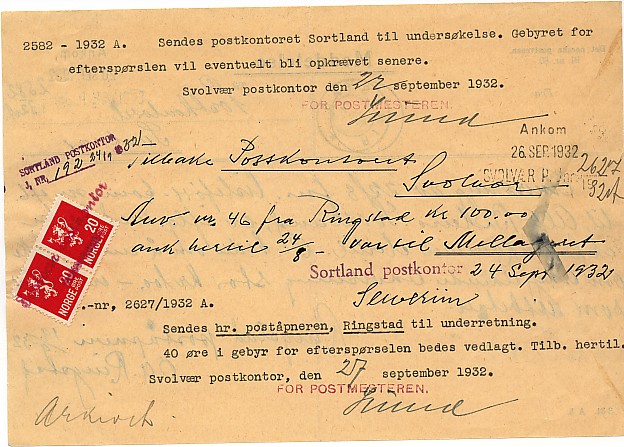 2582 - 1932 A. Sendes postkontoret Sortland til undersøkelse. Gebyret for
efterspørslen vil eventuelt bli opkrævet senere.
Svolvær postkontor den 22 september 1932.
FOR POSTMESTEREN.
Ankom
26 SEP. 1932
SVOLVÆR P.
2627
SORTLAND POSTKONTOR
J. NR. 192 24/9 1932
Tilbake Postkontoret
Svolvær
Anv. nr. 46 fra Ringstad kr 100.00
ank hertil 24/8 - var til Mellagret
Sortland postkontor 24 Sept 1932
20
NORGE
20
NORGE
-nr, 2627/1932 A.
Sendes hr. poståpneren, Ringstad til underretning.
40 øre i gebyr for efterspørselen bedes vedlagt. Tilb. hertil.
Svolvær postkontor, den 27 september 1932.
FOR POSTMESTEREN.